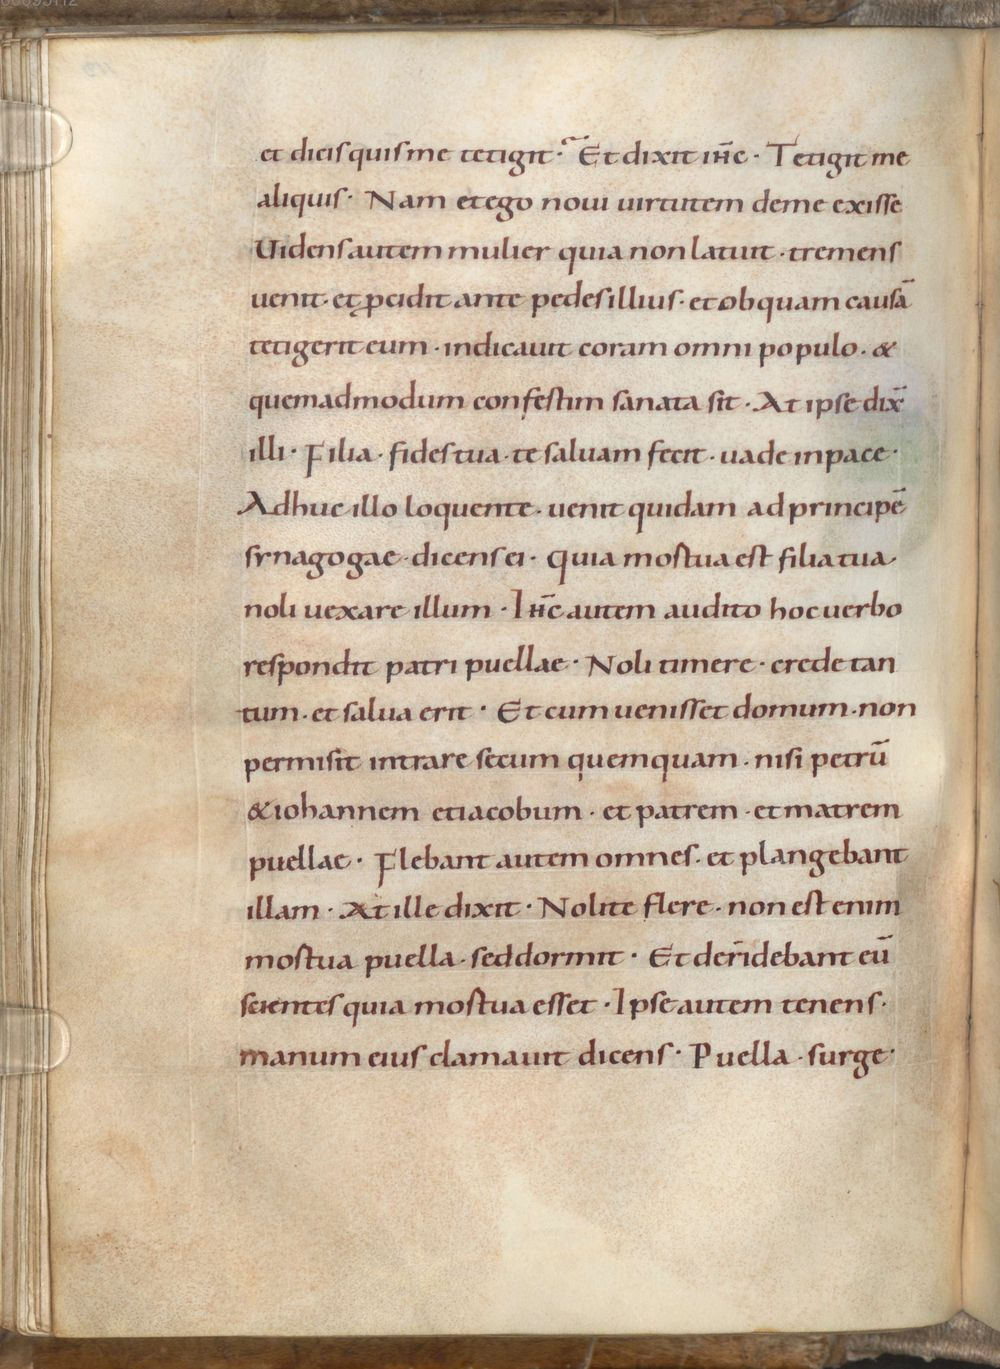 et dicis quis me tetigit · Et dixit ihc · Tetigit me
aliquis · Nam et ego novi uirtutem de me exisse
Uidens autem mulier quia non latuit · tremens
uenit · et ꝓcidit ante pedes illius · et ob quam causā
tetigerit eum · indicauit coram omni populo · &
quemadmodum confestim sanata sit · At ipse dix̄
illi · Filia · fides tua · te saluam fecit · uade in pace ·
Adhuc illo loquente · uenit quidam ad principē
synagogae · dicens ei · quia mortua est filia tua ·
noli uexare illum · Ihc̄ autem audito hoc uerbo
respondit patri puellae · Noli timere · crede tan
tum · et salua erit · Et cum uenisset domum · non
permisit intrare secum quemquam · nisi petrū
& iohannem et iacobum · et patrem · et matrem
puellae · Flebant autem omnes · et plangebant
illam · At ille dixit · Nolite flere · non est enim
mortua puella · sed dormit · Et deridebant eū
scientes quia mortua esset · Ipse autem tenens ·
manum eius clamauit dicens · Puella · surge ·